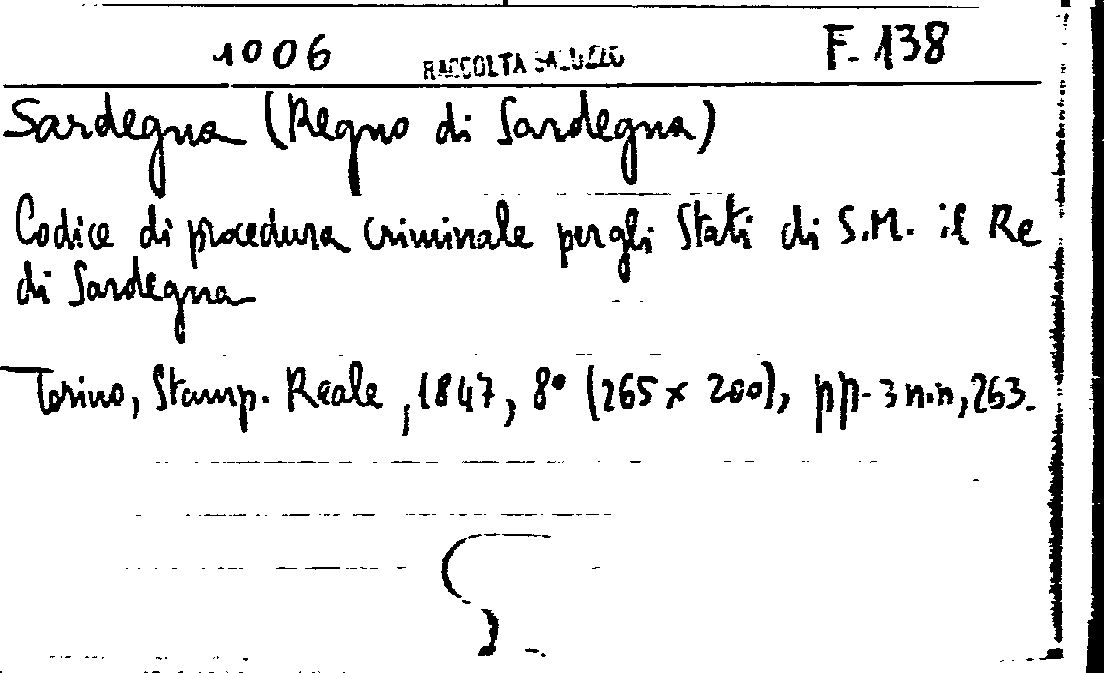 1006 RACCOLTA SALUZZO F. 138
Sardegna (Regno di Sardegna)
Codice di procedura criminale per gli Stati di S.M. il Re
di Sardegna
Torino, Stamp. Reale, 1847, 8° (265 x 200), pp. 3 n.n, 263.